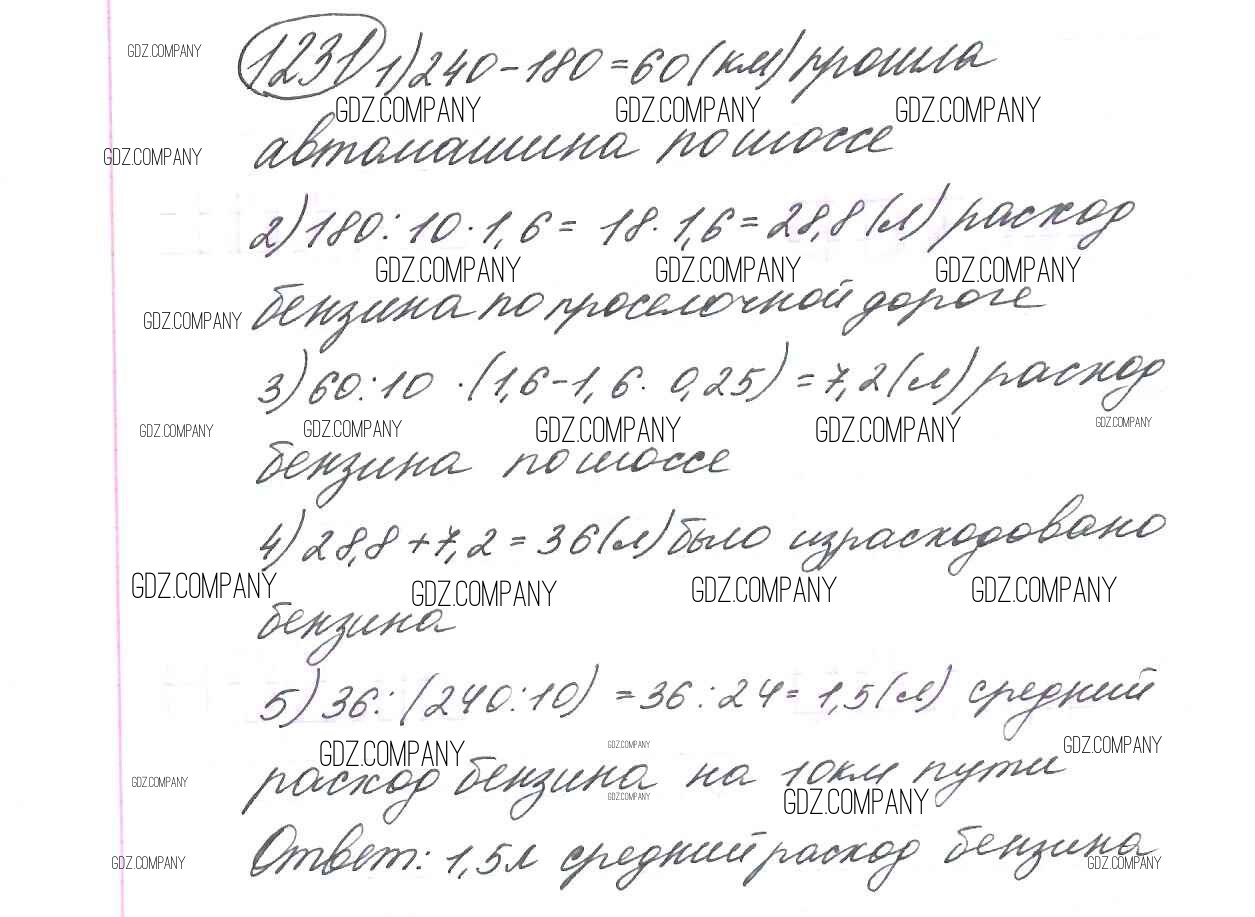 1231 1) 240 - 180 = 60 (км) прошла
автомашина по шоссе
2) 180 : 10 · 1,6 = 18 · 1,6 = 28,8 (л) расход
бензина по проселочной дороге
3) 60 : 10 · (1,6 - 1,6 · 0,25) = 7,2 (л) расход
бензина по шоссе
4) 28,8 + 7,2 = 36 (л) было израсходовано
бензина
5) 36 : (240 : 10) = 36 : 24 = 1,5 (л) средний
расход бензина на 10 км пути
Ответ: 1,5 л средний расход бензина
GDZ.COMPANY
GDZ.COMPANY GDZ.COMPANY GDZ.COMPANY
GDZ.COMPANY
GDZ.COMPANY GDZ.COMPANY GDZ.COMPANY
GDZ.COMPANY
GDZ.COMPANY GDZ.COMPANY GDZ.COMPANY GDZ.COMPANY GDZ.COMPANY
GDZ.COMPANY GDZ.COMPANY GDZ.COMPANY GDZ.COMPANY
GDZ.COMPANY GDZ.COMPANY GDZ.COMPANY
GDZ.COMPANY GDZ.COMPANY GDZ.COMPANY
GDZ.COMPANY GDZ.COMPANY